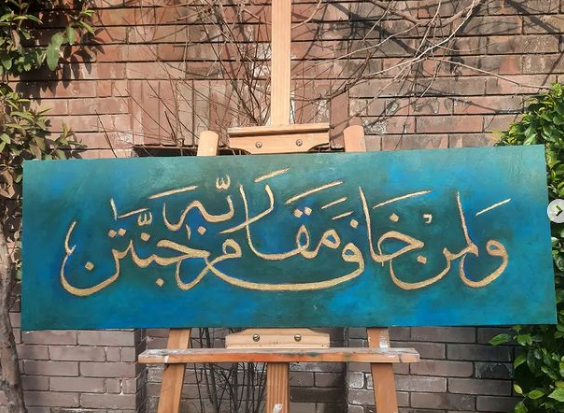 ولمن خاف مقام ربه جنتن